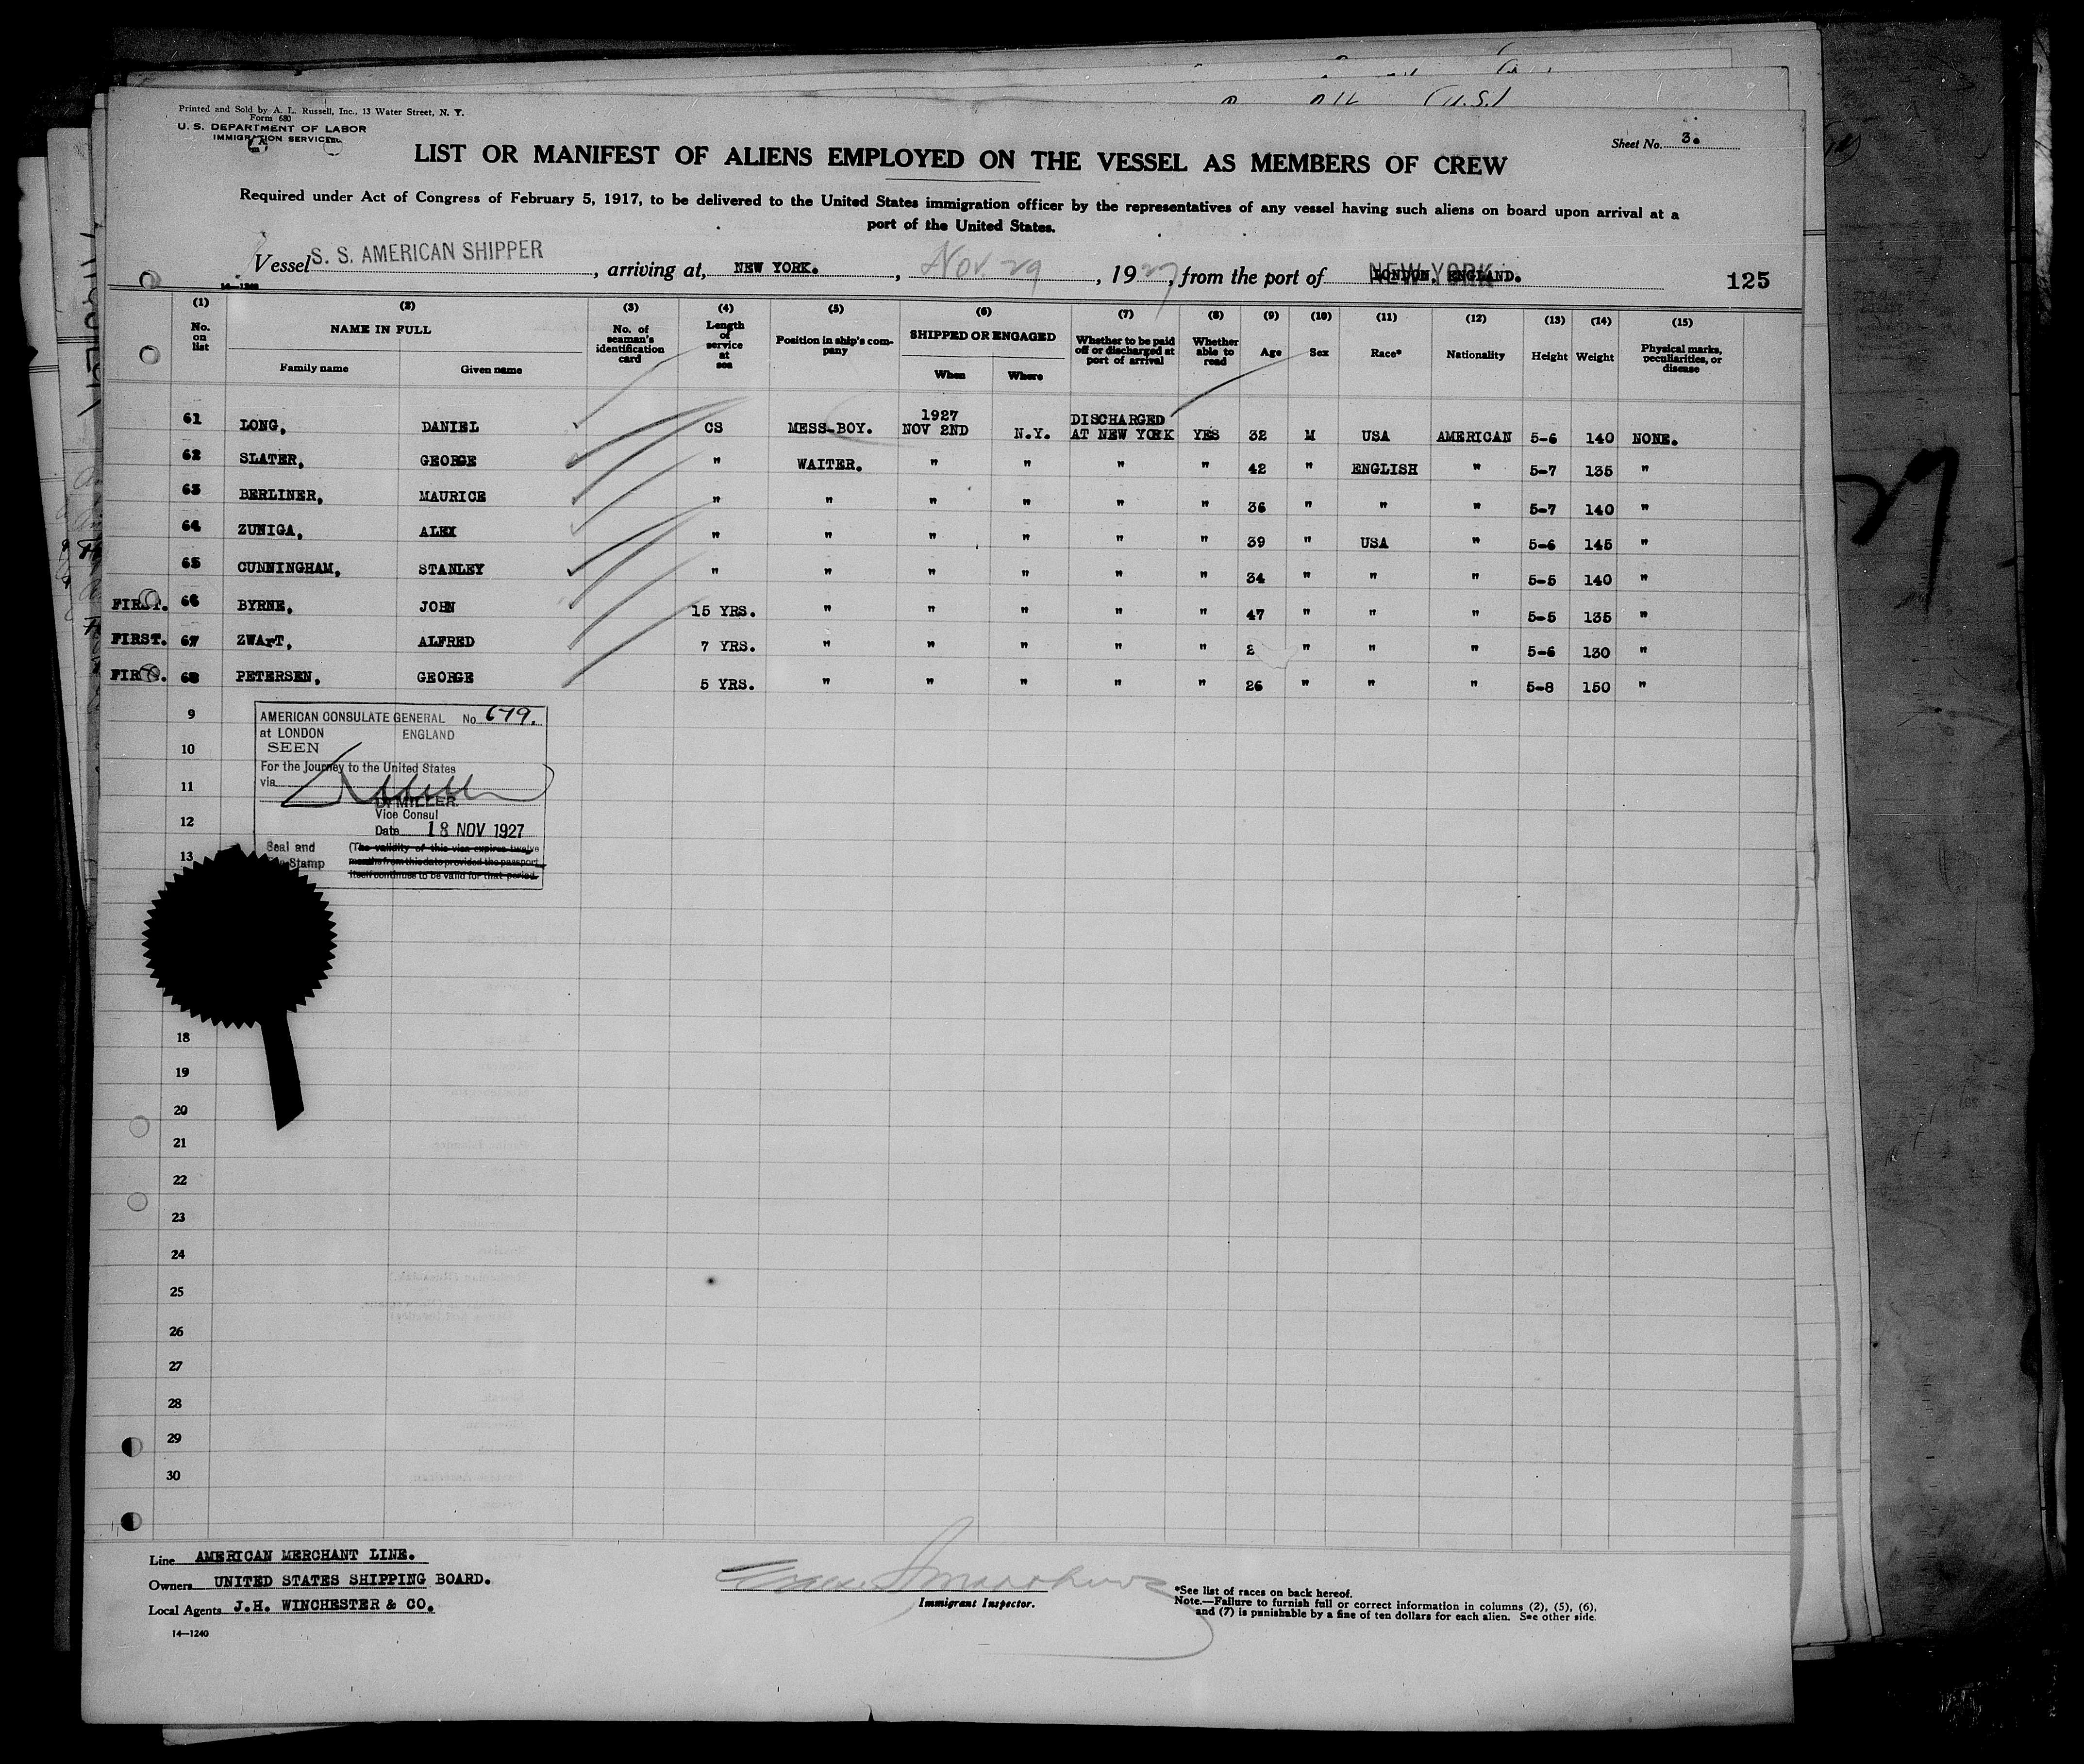 Printed and Sold by A. L. Russell, Inc., 13 Water Street, N. Y.
Form 680
U. S. DEPARTMENT OF LABOR
IMMIGRATION SERVICE
Sheet No. 3.
LIST OR MANIFEST OF ALIENS EMPLOYED ON THE VESSEL AS MEMBERS OF CREW
Required under Act of Congress of February 5, 1917, to be delivered to the United States immigration officer by the representatives of any vessel having such aliens on board upon arrival at a
port of the United States.
Vessel S. S. AMERICAN SHIPPER, arriving at, NEW YORK., Nov. 29, 1927, from the port of LONDON, ENGLAND. NEW YORK
125
14—1240
(1) (2) (3) (4) (5) (6) (7) (8) (9) (10) (11) (12) (13) (14) (15)
No. on list NAME IN FULL Family name Given name No. of seaman's identification card Length of service at sea Position in ship's company SHIPPED OR ENGAGED When Where Whether to be paid off or discharged at port of arrival Whether able to read Age Sex Race* Nationality Height Weight Physical marks, peculiarities, or disease
61 LONG, DANIEL CS MESS-BOY. 1927 NOV 2ND N.Y. DISCHARGED AT NEW YORK YES 32 M USA AMERICAN 5-6 140 NONE.
62 SLATER, GEORGE " WAITER. " " " " 42 " ENGLISH " 5-7 135 "
63 BERLINER, MAURICE " " " " " " 36 " " " 5-7 140 "
64 ZUNIGA, ALEX " " " " " " 39 " USA " 5-6 145 "
65 CUNNINGHAM, STANLEY " " " " " " 34 " " " 5-5 140 "
FIRST. 66 BYRNE, JOHN 15 YRS. " " " " " 47 " " " 5-5 135 "
FIRST. 67 ZWArT, ALFRED 7 YRS. " " " " " 2 " " " 5-6 130 "
FIRST. 68 PETERSEN, GEORGE 5 YRS. " " " " " 26 " " " 5-8 150 "
9
10
11
12
13
AMERICAN CONSULATE GENERAL No 679.
at LONDON ENGLAND
SEEN
For the Journey to the United States
via
D. MILLER.
Vice Consul
Date 18 NOV 1927
Seal and
Stamp
(The validity of this visa expires twelve
months from this date provided the passport
itself continues to be valid for that period.
18
19
20
21
22
23
24
25
26
27
28
29
30
Line AMERICAN MERCHANT LINE.
Owners UNITED STATES SHIPPING BOARD.
Local Agents J.H. WINCHESTER & CO.
14—1240
Immigrant Inspector.
*See list of races on back hereof.
Note.—Failure to furnish full or correct information in columns (2), (5), (6),
and (7) is punishable by a fine of ten dollars for each alien. See other side.
27